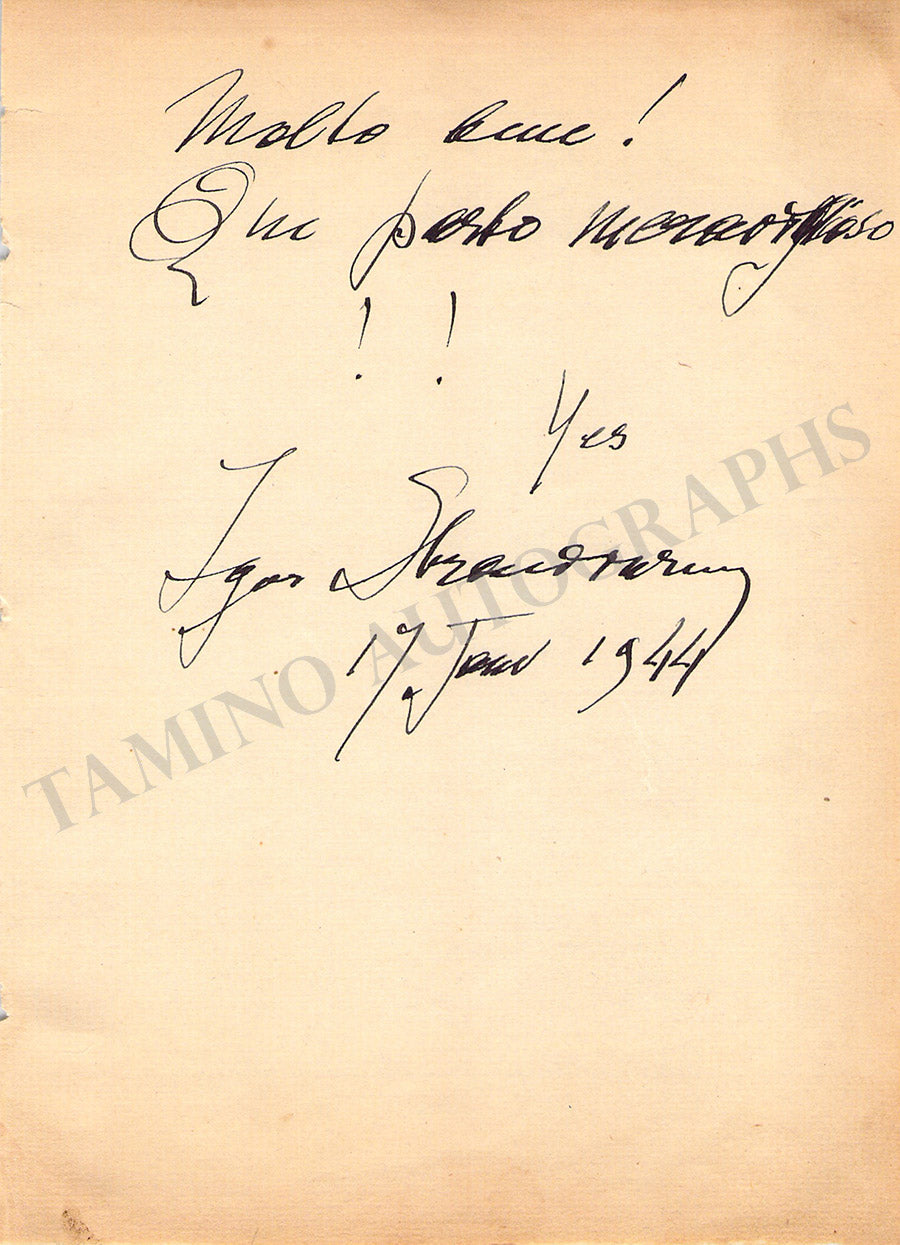 Molto bene!
Che pasto meraviglioso
! !
Yes
Igor Strawinsky
17 Janv 1944
TAMINO AUTOGRAPHS